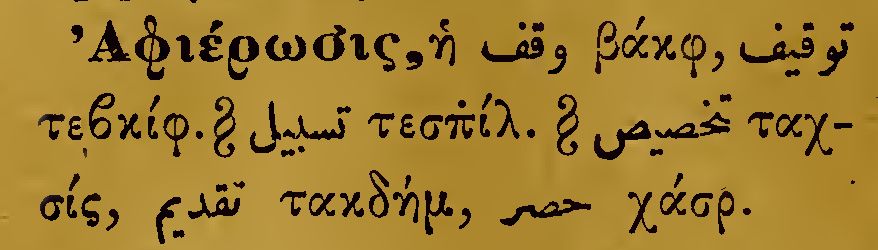 Ἀφιέρωσις, ἡ وقف βάκφ, توقيف
τεβκίφ. § تسبيل τεσπ̇ίλ. § تخصيص ταχ-
σίς, تقديم τακδήμ, حصر χάσρ.